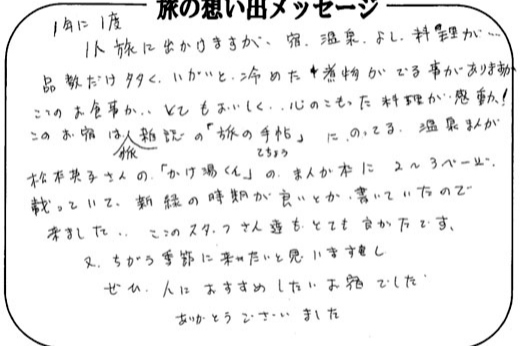 旅の想い出メッセージ
1年に1度
1人旅に出かけますが、宿、温泉、よし、料理が…
品数だけ多く、いがいと、冷めた煮物がでる事がありますが
ここのお食事が、とてもおいしく、心のこもった料理が感動!
このお宿は旅雑誌の「旅の手帖」にのってる、温泉まんが
てちょう
松本英子さんの「かけ湯くん」のまんが本に2〜3ページ
載っていて、新緑の時期が良いとか、書いていたので
来ました、ここのスタッフさん達もとても良かたです、
又、ちがう季節に来たいと思いますし
ぜひ、人におすすめしたいお宿でした
ありがとうございました